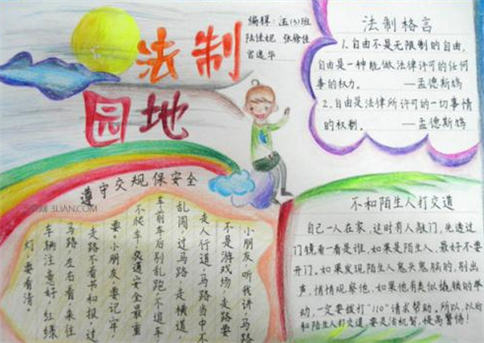 法制
园地
法制格言
1.自由不是无限制的自由,
自由是一种能做法律许可的任何
事的权力。 —孟德斯鸠
2.自由是法律所许可的一切事情
的权制。 —孟德斯鸠
遵守交规保安全
小朋友听我讲,马路
不是游戏场,走路
走人行道,马路当中不
乱闯,过马路,走横道,
车前车后别乱跑,不追车
不爬车,交通安全最重
要,小朋友要记牢,
走路不看书和报,过
马路左右看,来往
车辆注意好,红绿
灯,要看清。
不和陌生人打交道
自己一人在家,这时有人敲门,先透过
门镜看一看是谁,如果是陌生人,最好不要
开门。如果发现陌生人鬼头鬼脑的,别出
声,悄悄观察他,如果他有类似撬锁的举
动,一定要拨打"110"请求帮助。所以,以后
和陌生人打交道,要灵活机智,提高警惕!
3LIAN.COM